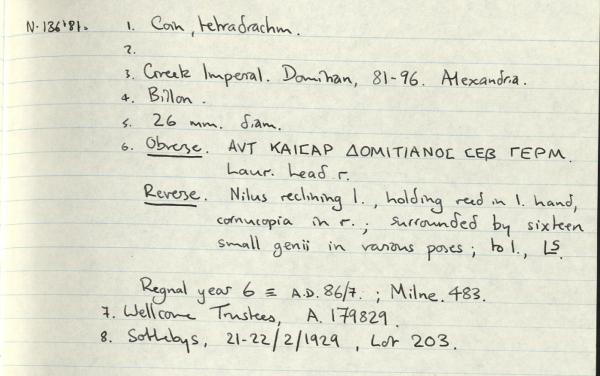 N.136'81. 1. Coin, tetradrachm.
2.
3. Greek Imperial. Domitian, 81-96. Alexandria.
4. Billon.
5. 26 mm. diam.
6. Obverse. ΑVΤ ΚΑΙCΑΡ ΔΟΜΙΤΙΑΝΟC CΕΒ ΓΕΡΜ.
Laur. head r.
Reverse. Nilus reclining l., holding reed in l. hand,
cornucopia in r.; surrounded by sixteen
small genii in various poses; to l., LS.
Regnal year 6 ≡ A.D. 86/7. ; Milne. 483.
7. Wellcome Trustees, A. 179829.
8. Sothebys, 21-22/2/1929, Lot 203.